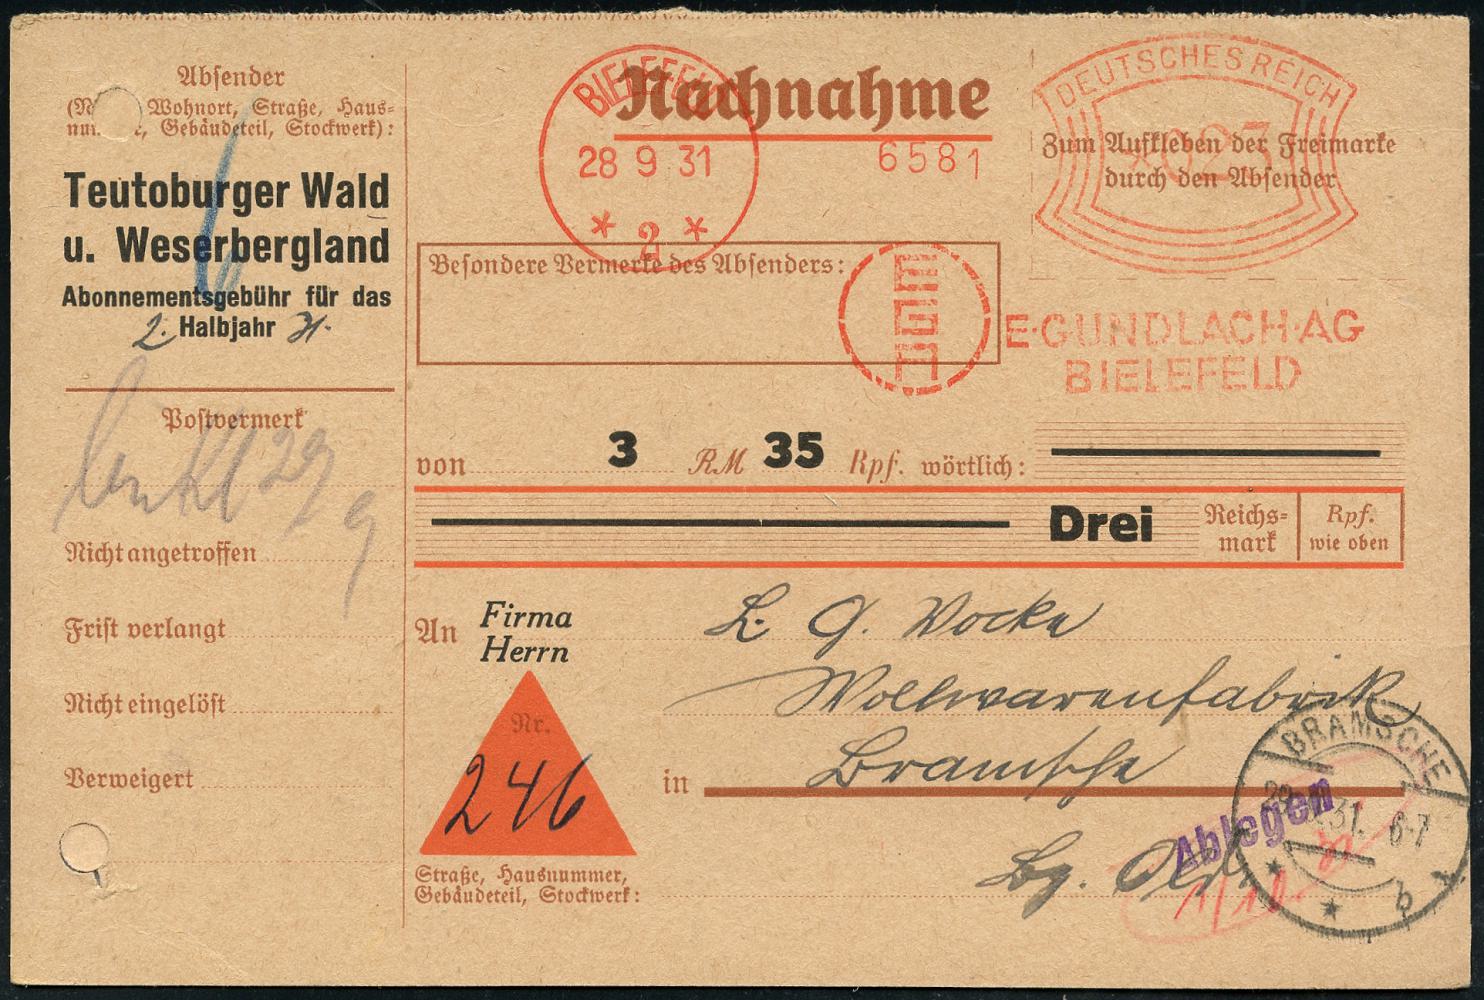 Absender
Wohnort, Straße, Haus=
Gebäudeteil, Stockwerk):
Teutoburger Wald
u. Weserbergland
Abonnementsgebühr für das
2. Halbjahr 31.
Postvermerk
29
9
Nicht angetroffen
Frist verlangt
Nicht eingelöst
Verweigert
Nachnahme
BIELEFELD
28 9 31
* 2 *
6581
DEUTSCHES REICH
Zum Aufkleben der Freimarke
durch den Absender
Besondere Vermerke des Absenders:
EGB
E·GUNDLACH·AG
BIELEFELD
von 3 RM 35 Rpf. wörtlich:
Drei Reichs= mark Rpf. wie oben
An Firma
Herrn
L. G. Vocke
Wollwarenfabrik
Nr.
246
in Bramsche
Straße, Hausnummer,
Gebäudeteil, Stockwerk:
Bg.
Ablegen
1/10.
BRAMSCHE
29. 31. 6-7
* b *